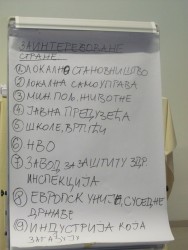 ЗАИНТЕРЕСОВАНЕ
СТРАНЕ
① ЛОКАЛНО СТАНОВНИШТВО
② ЛОКАЛНА САМОУПРАВА
③ МИН. ПОЉ. ЖИВОТНЕ
④ ЈАВНА ПРЕДУЗЕЋА
⑤ ШКОЛЕ, ВРТИЋИ
⑥ НВО
⑦ ЗАВОД ЗА ЗАШТИТУ ЗДР.
ИНСПЕКЦИЈА
⑧ ЕВРОПСК УНИЈА, СУСЕДНЕ
ДРЖАВЕ
⑨ ИНДУСТРИЈА КОЈА
ЗАГАЂУЈЕ